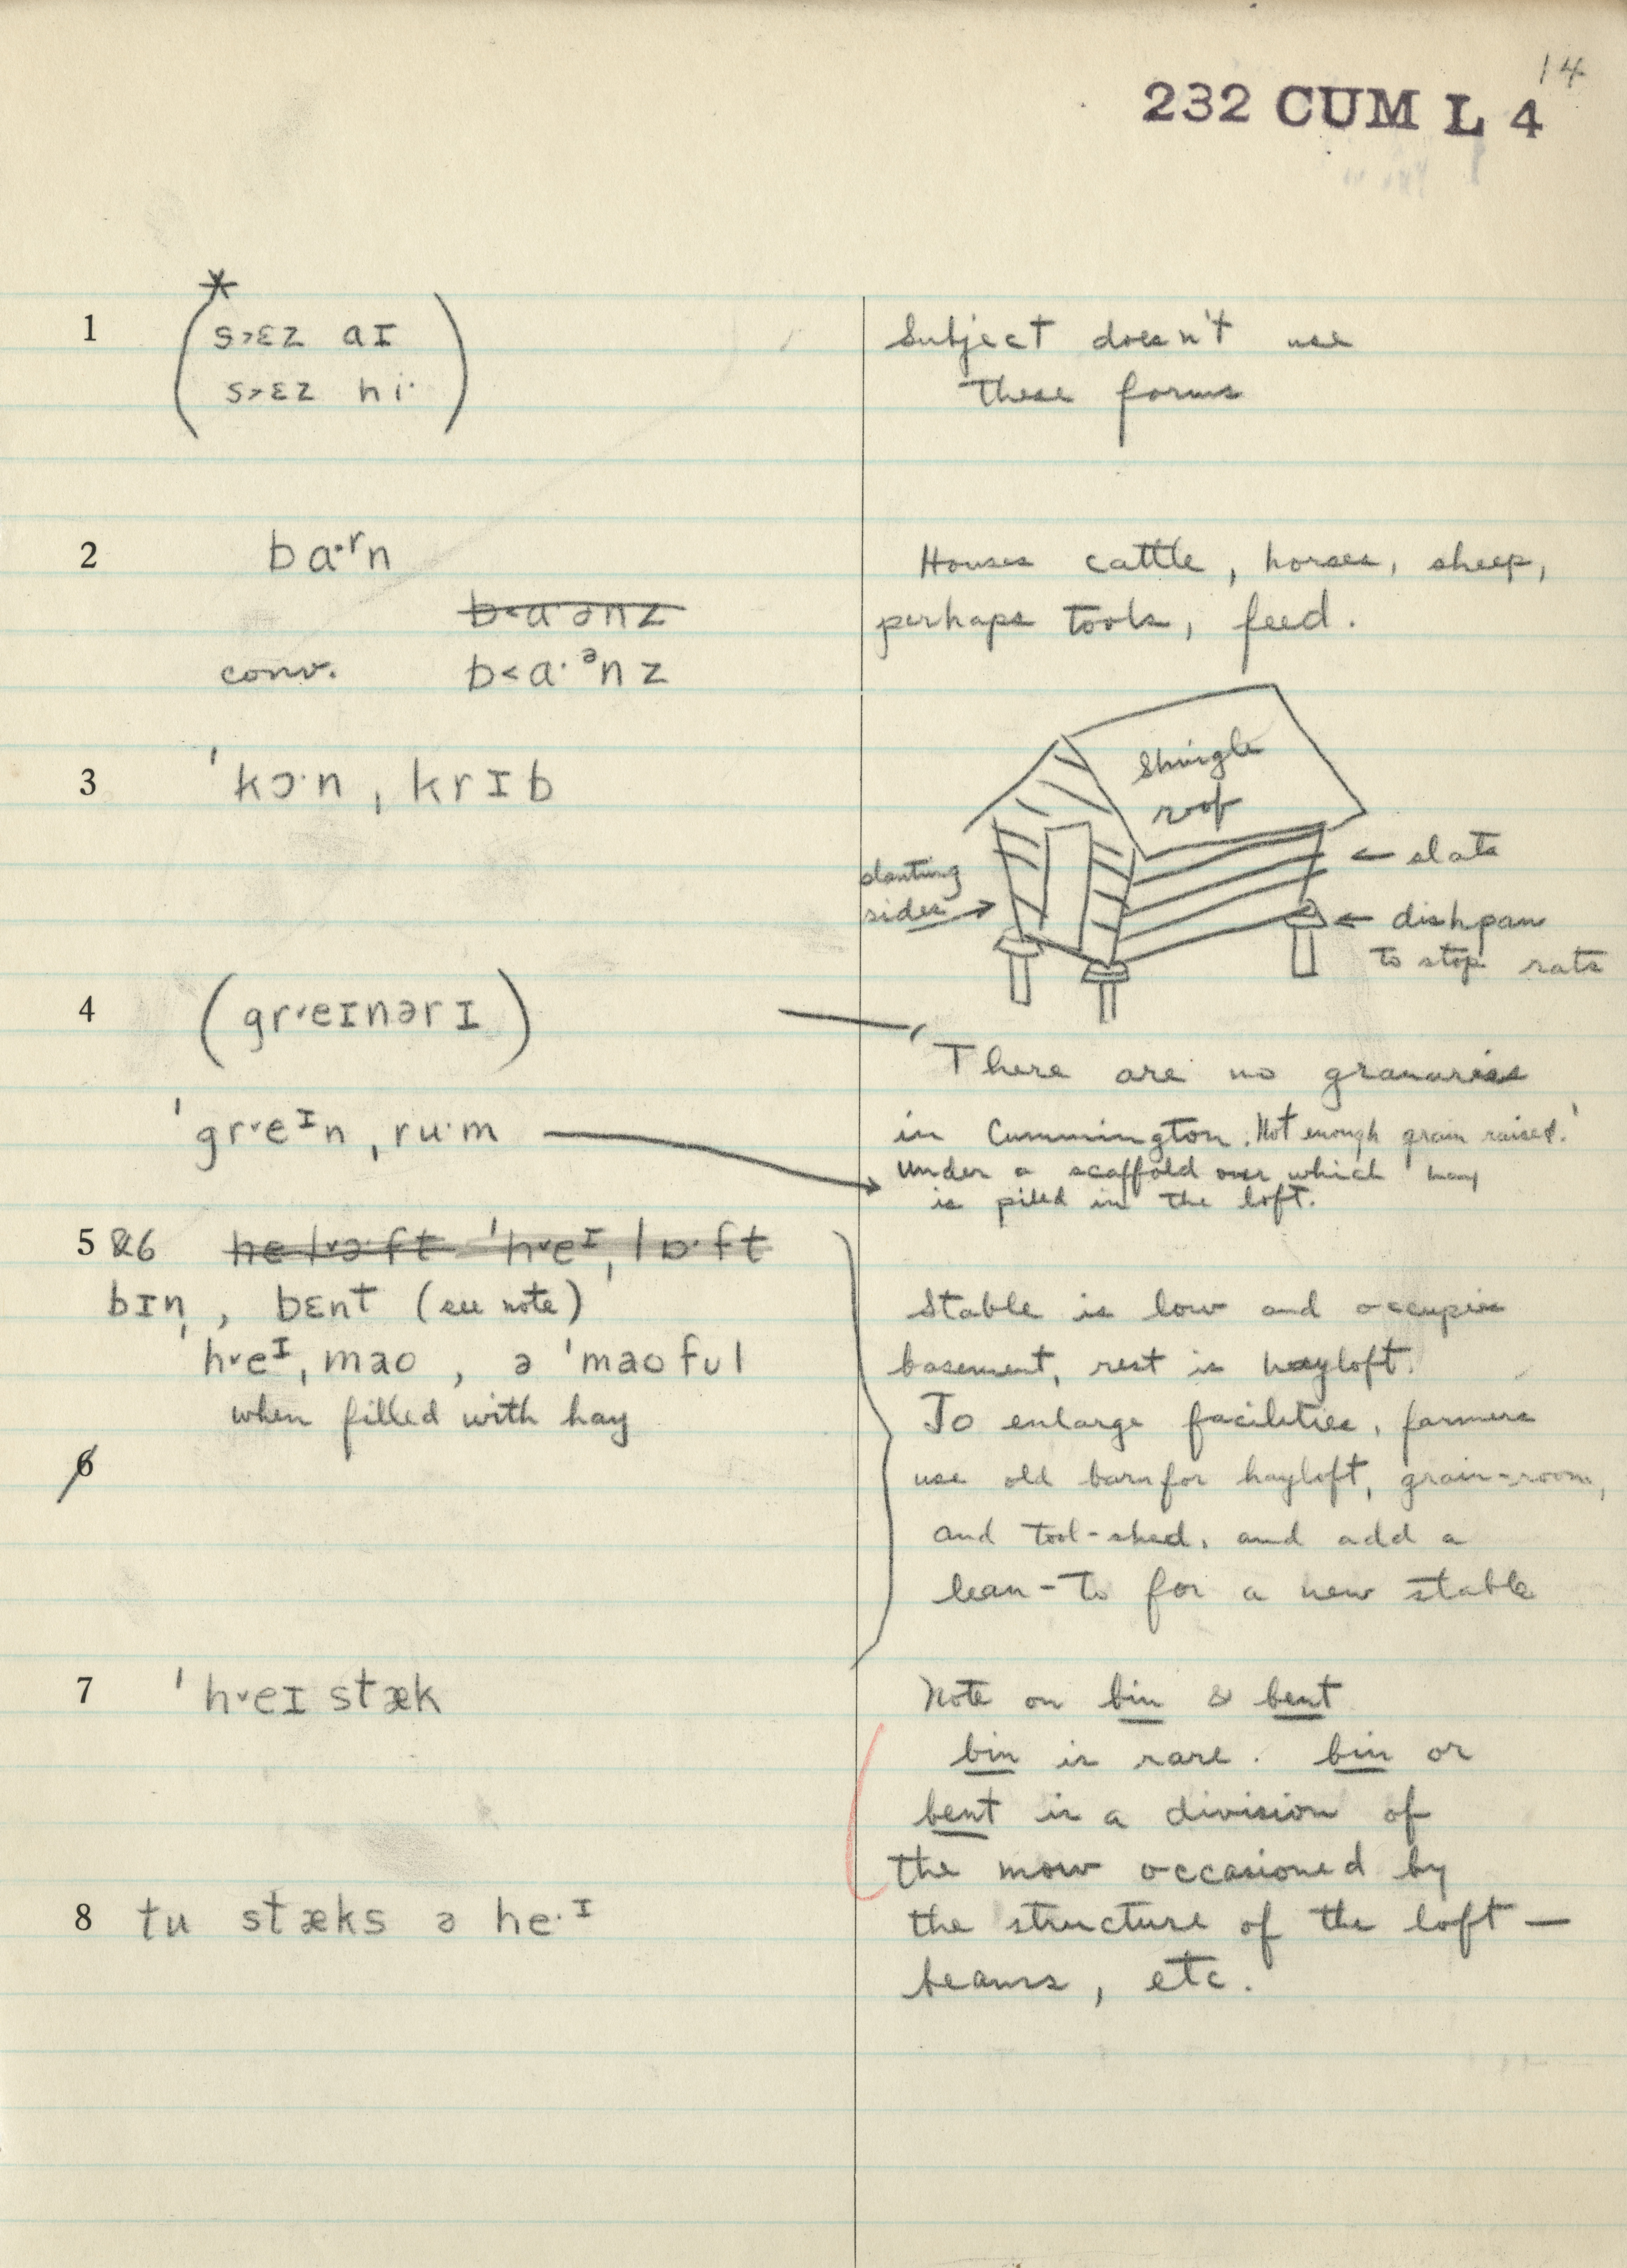 14
232 CUM L 4
*
1 (s˃ɛz aɪ
s˃ɛz hi·)
Subject doesn't use
these forms
2 ba·ʳn
b˂a·ənz
conv. b˂a·ᵊnz
Houses cattle, horses, sheep,
perhaps tools, feed.
3 ˈkɔ·nˌkrɪb
shingle
roof
slanting
sides
← slats
← dishpan
to stop rats
4 (gr˅eɪnərɪ)
ˈgr˅eᶦnˌru·m
'There are no granaries
in Cummington. Not enough grain raised.'
Under a scaffold over which hay
is piled in the loft.
5 &6 he l˅ɔ·ft ˈh˅eᶦˌlɒ·ft
bɪn, bɛnt (see note)
ˈh˅eᶦˌmao, ə ˈmaoful
when filled with hay
6
Stable is low and occupies
basement, rest is hayloft.
To enlarge facilities, farmers
use old barn for hayloft, grain-room,
and tool-shed, and add a
lean-to for a new stable
7 ˈh˅eɪstæk
Note on bin & bent
bin is rare. bin or
bent is a division of
the mow occasioned by
the structure of the loft —
beams, etc.
8 tu stæks ə he·ᶦ